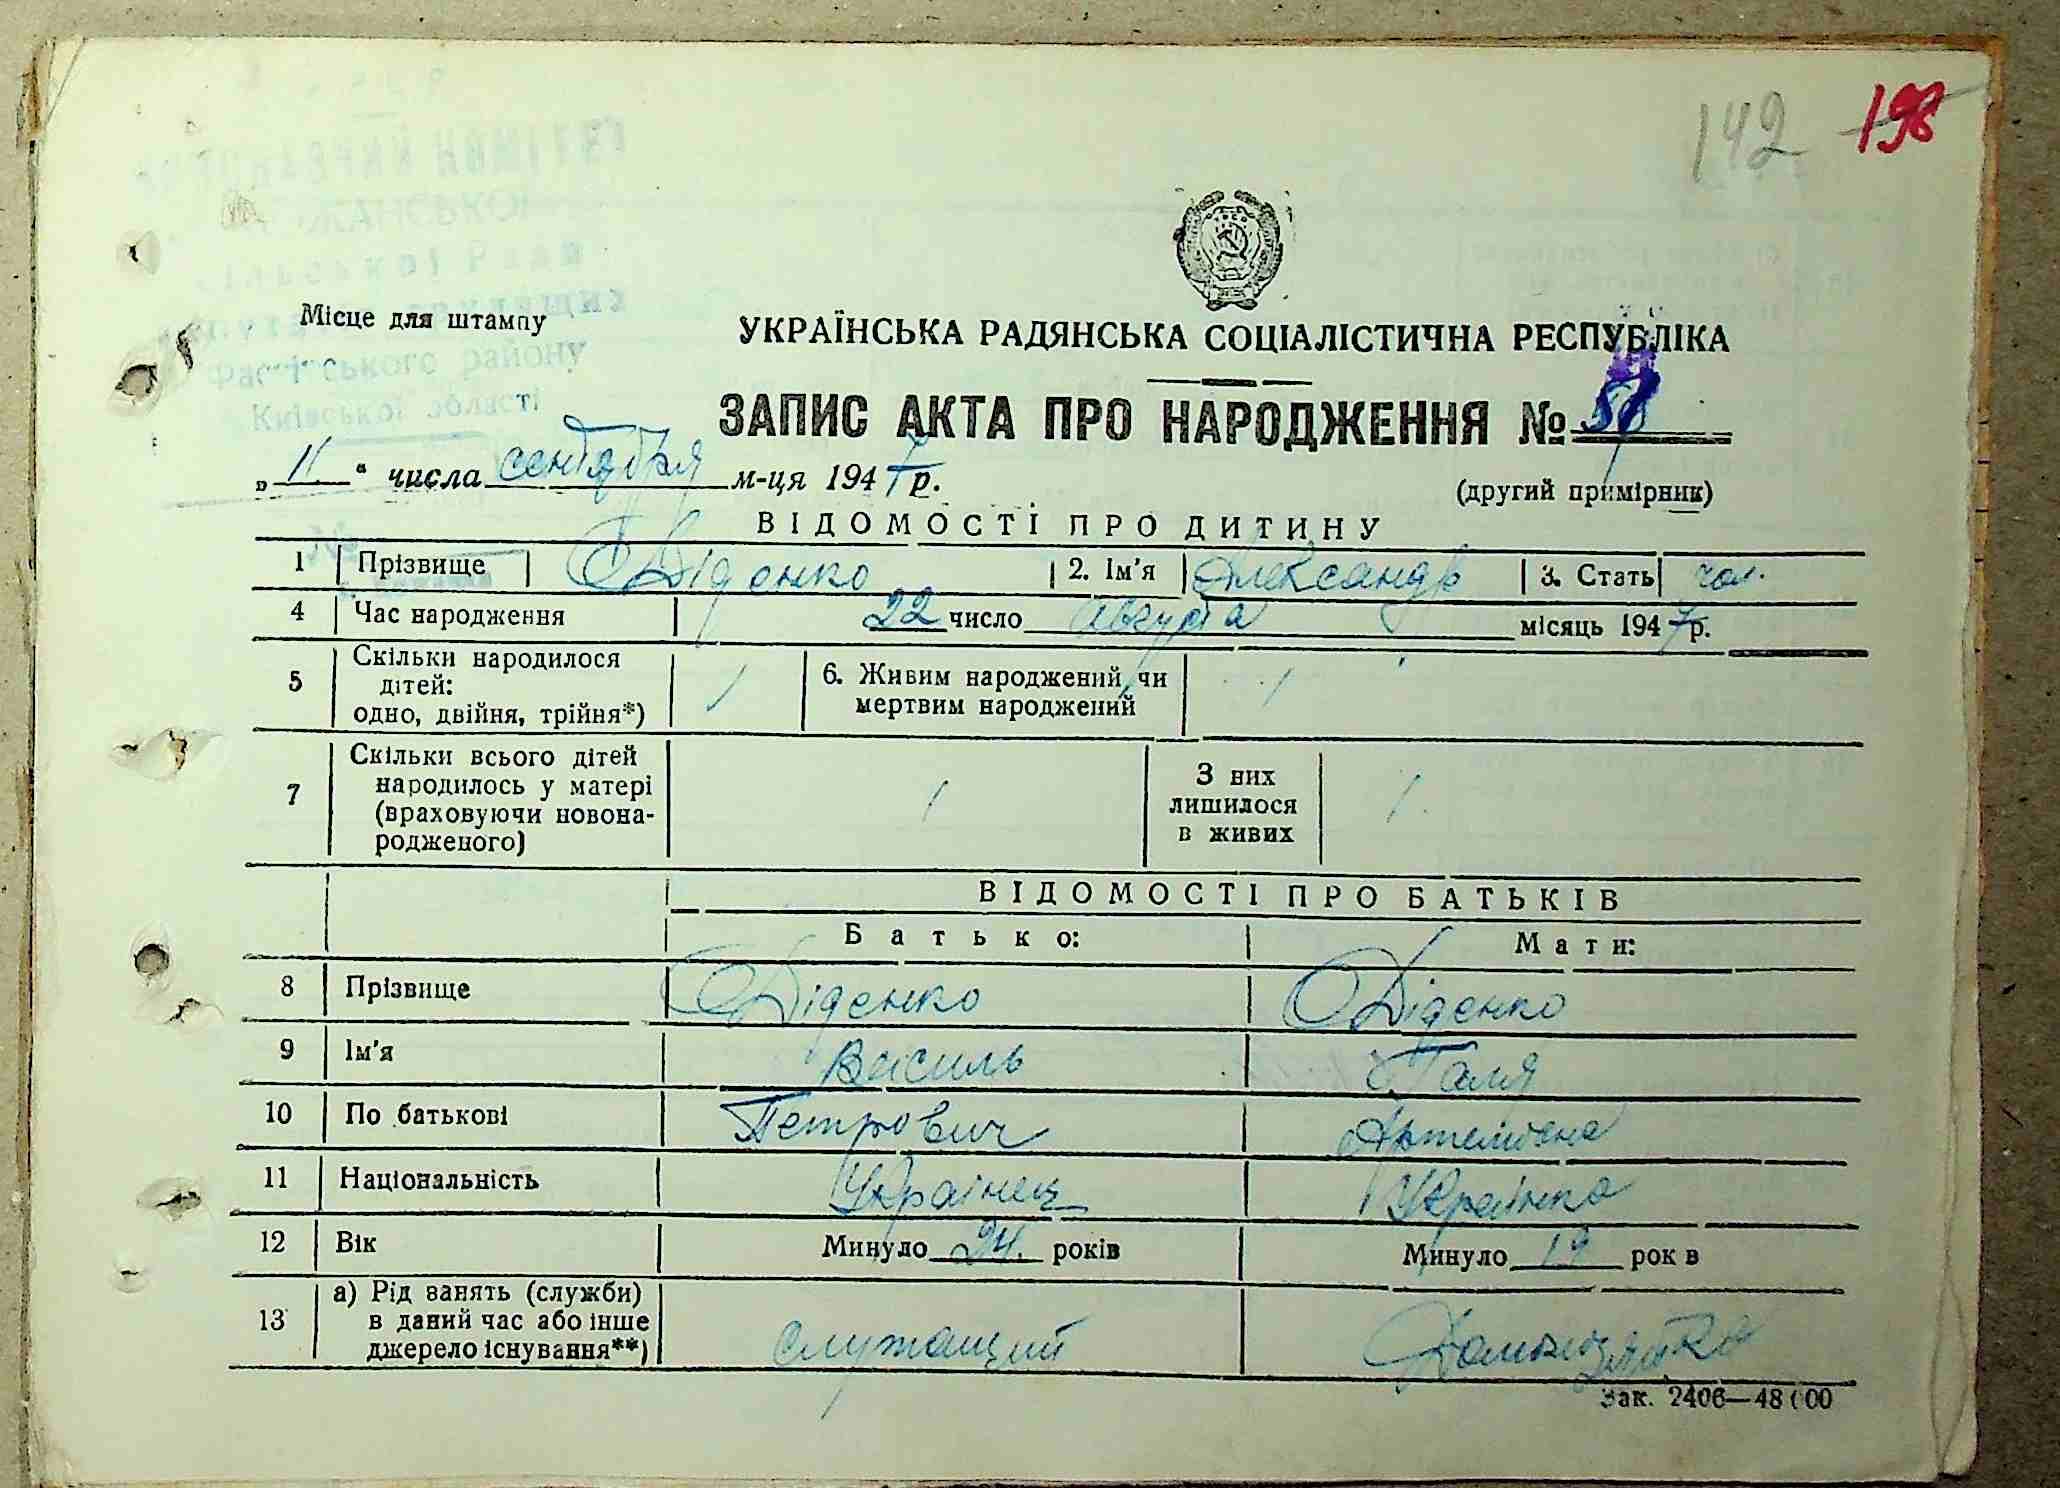 142 198
Місце для штампу
УКРАЇНСЬКА РАДЯНСЬКА СОЦІАЛІСТИЧНА РЕСПУБЛІКА
ЗАПИС АКТА ПРО НАРОДЖЕННЯ № 58
„ 11 “ числа сентября м-ця 1947 р.
(другий примірник)
ВІДОМОСТІ ПРО ДИТИНУ
1 Прізвище Діденко 2. Ім'я Александр 3. Стать чол.
4 Час народження 22 число августа місяць 1947 р.
5 Скільки народилося дітей: одно, двійня, трійня*) 1 6. Живим народжений чи мертвим народжений 1
7 Скільки всього дітей народилось у матері (враховуючи новонародженого) 1 З них лишилося в живих 1
ВІДОМОСТІ ПРО БАТЬКІВ
Батько: Мати:
8 Прізвище Діденко Діденко
9 Ім'я Василь Галя
10 По батькові Петрович
11 Національність Українец Українка
12 Вік Минуло 24. років Минуло 19 рок в
13 а) Рід занять (служби) в даний час або інше джерело існування**) служащий
Зак. 2406—48
сільської Ради
Фастівського району
Київської області